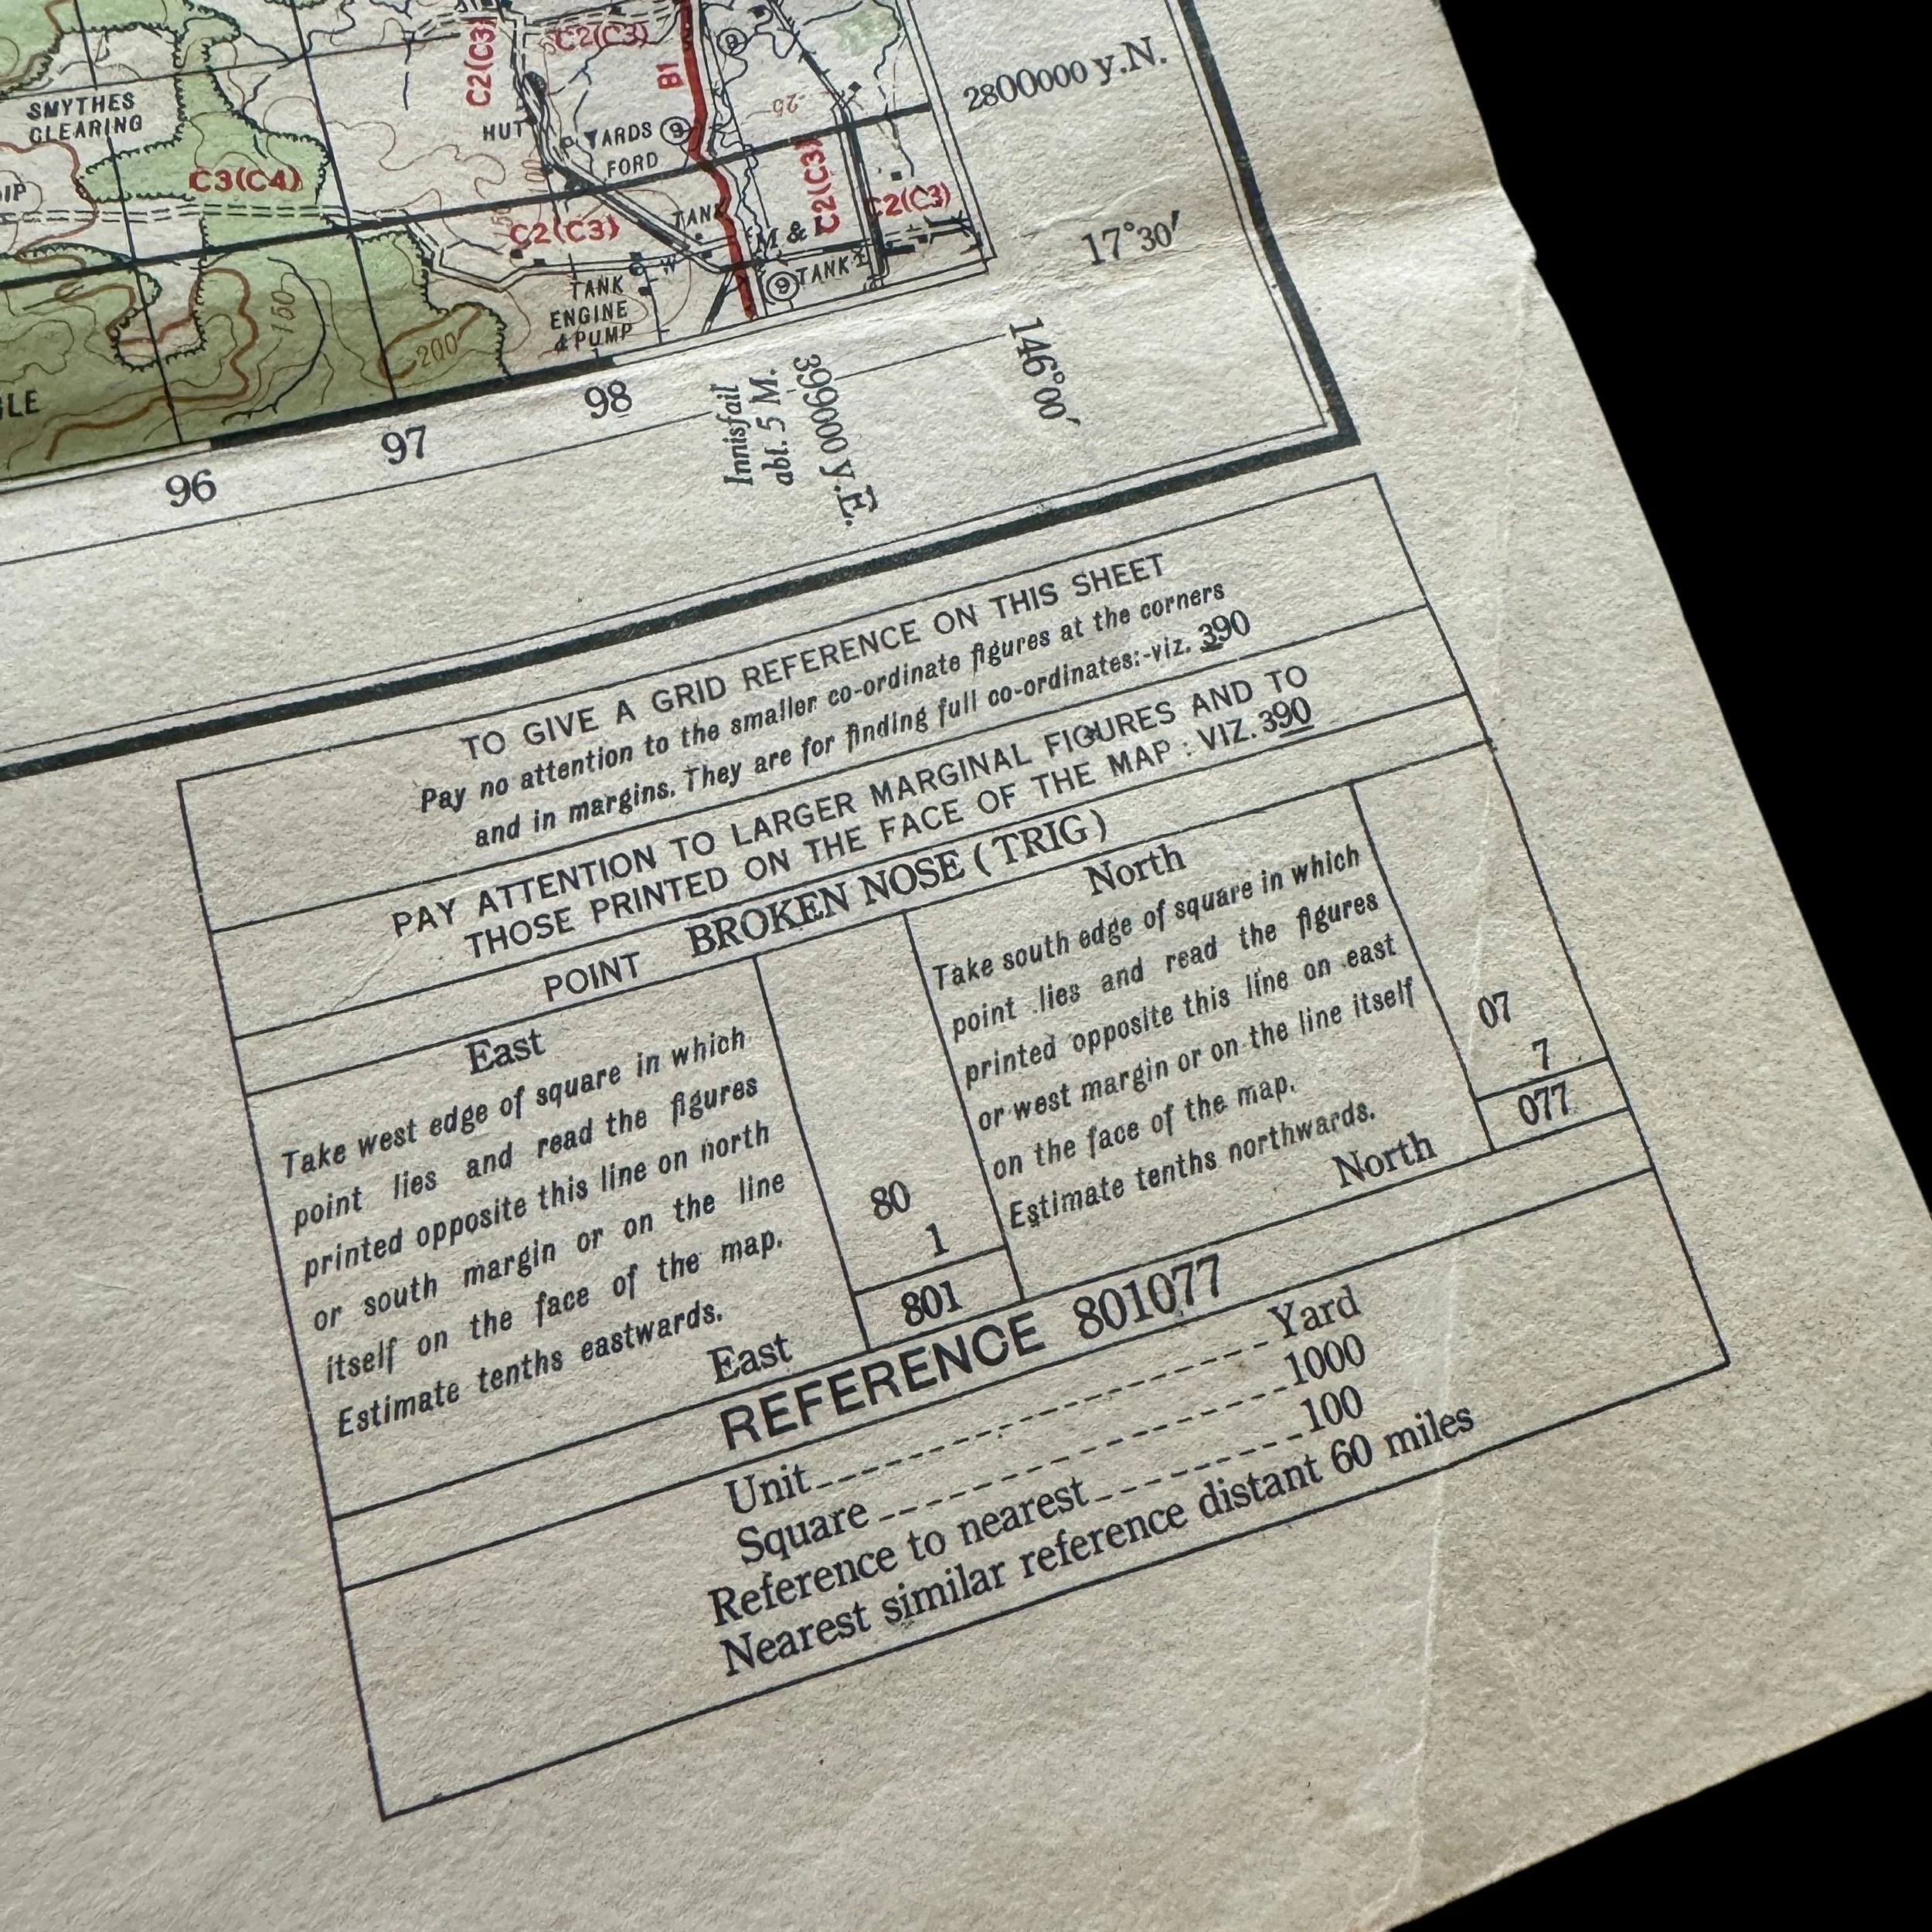 SMYTHES
CLEARING
C3(C4)
C2(C3)
C2(C3)
B1
9
HUT
YARDS
9
FORD
25
C2(C3)
C2(C3)
C2(C3)
TANK
M &
W
TANK
9
TANK
ENGINE
& PUMP
150
200
2800000 y.N.
17°30′
146°00′
96
97
98
Innisfail
abt. 5 M.
399000 y.E.
TO GIVE A GRID REFERENCE ON THIS SHEET
Pay no attention to the smaller co-ordinate figures at the corners
and in margins. They are for finding full co-ordinates:-viz. 390
PAY ATTENTION TO LARGER MARGINAL FIGURES AND TO
THOSE PRINTED ON THE FACE OF THE MAP : VIZ. 390
POINT BROKEN NOSE ( TRIG )
East
Take west edge of square in which
point lies and read the figures
printed opposite this line on north
or south margin or on the line
itself on the face of the map.
Estimate tenths eastwards.
East
80
1
801
North
Take south edge of square in which
point lies and read the figures
printed opposite this line on east
or west margin or on the line itself
on the face of the map.
Estimate tenths northwards.
North
07
7
077
REFERENCE 801077
Unit Yard
Square 1000
Reference to nearest 100
Nearest similar reference distant 60 miles